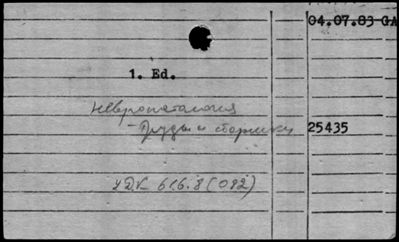 04.07.83 GA
1. Ed.
Невропатология
- Труды и сборники 25435
УДК 616.8 (082)